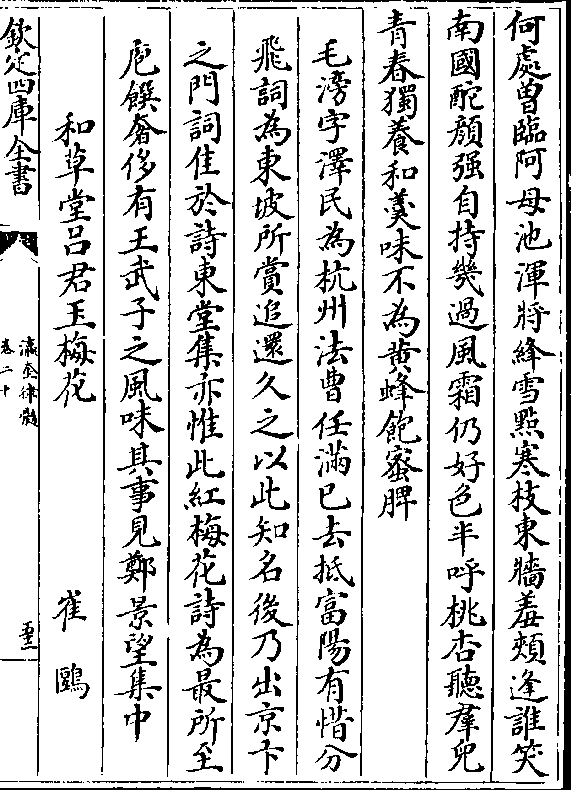 何處曾臨阿母池渾將絳雪點寒枝東牆羞頰逢誰笑
南國酡顔强自持幾過風霜仍好色半呼桃杏聽羣兒
青春獨養和羮味不為黄蜂飽蜜脾
毛滂字澤民為杭州法曹任滿已去抵富陽有惜分
飛詞為東坡所賞追還久之以此知名後乃出京卞
之門詞佳於詩東堂集亦惟此紅梅花詩為最所至
庖饌奢侈有王武子之風味其事見鄭景望集中
和草堂吕君玉梅花 崔鷗
欽定四庫全書
瀛奎律髓
卷二十